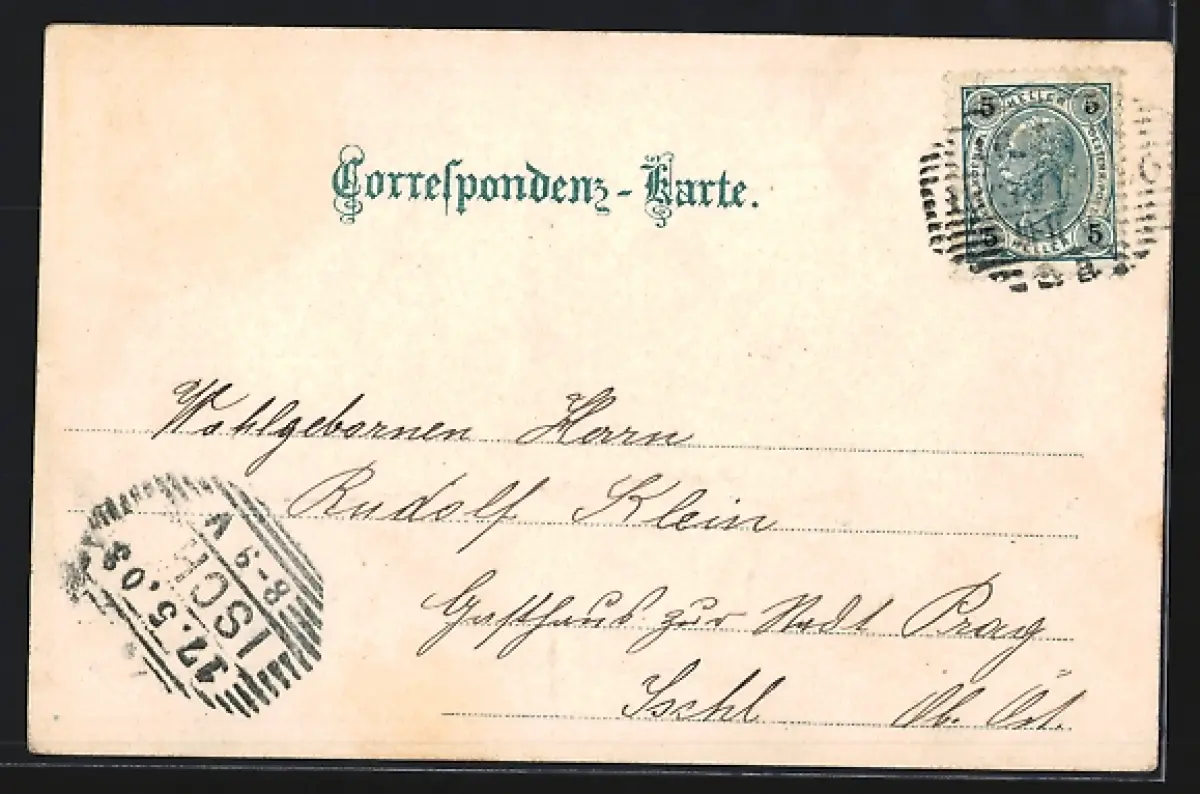 5 HELLER 5
5 HELLER 5
Correspondenz-Karte.
Wohlgebornen Herrn
Rudolf Klein
Gasthaus zur Stadt Prag
Ischl Ob. Öst.
ISCHL
17.5.03
8-9 V